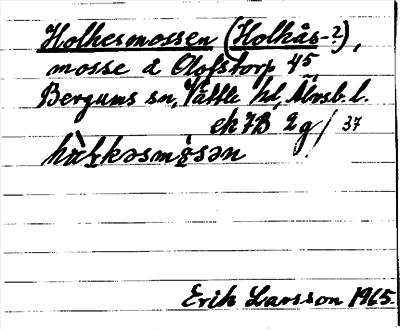 Holkesmossen (Holkås-?),
mosse å Olofstorp 4⁵,
Bergums sn, Vättle hd, Älvsb. l.
ek 7B 2g/ 37
Erik Larsson 1965.